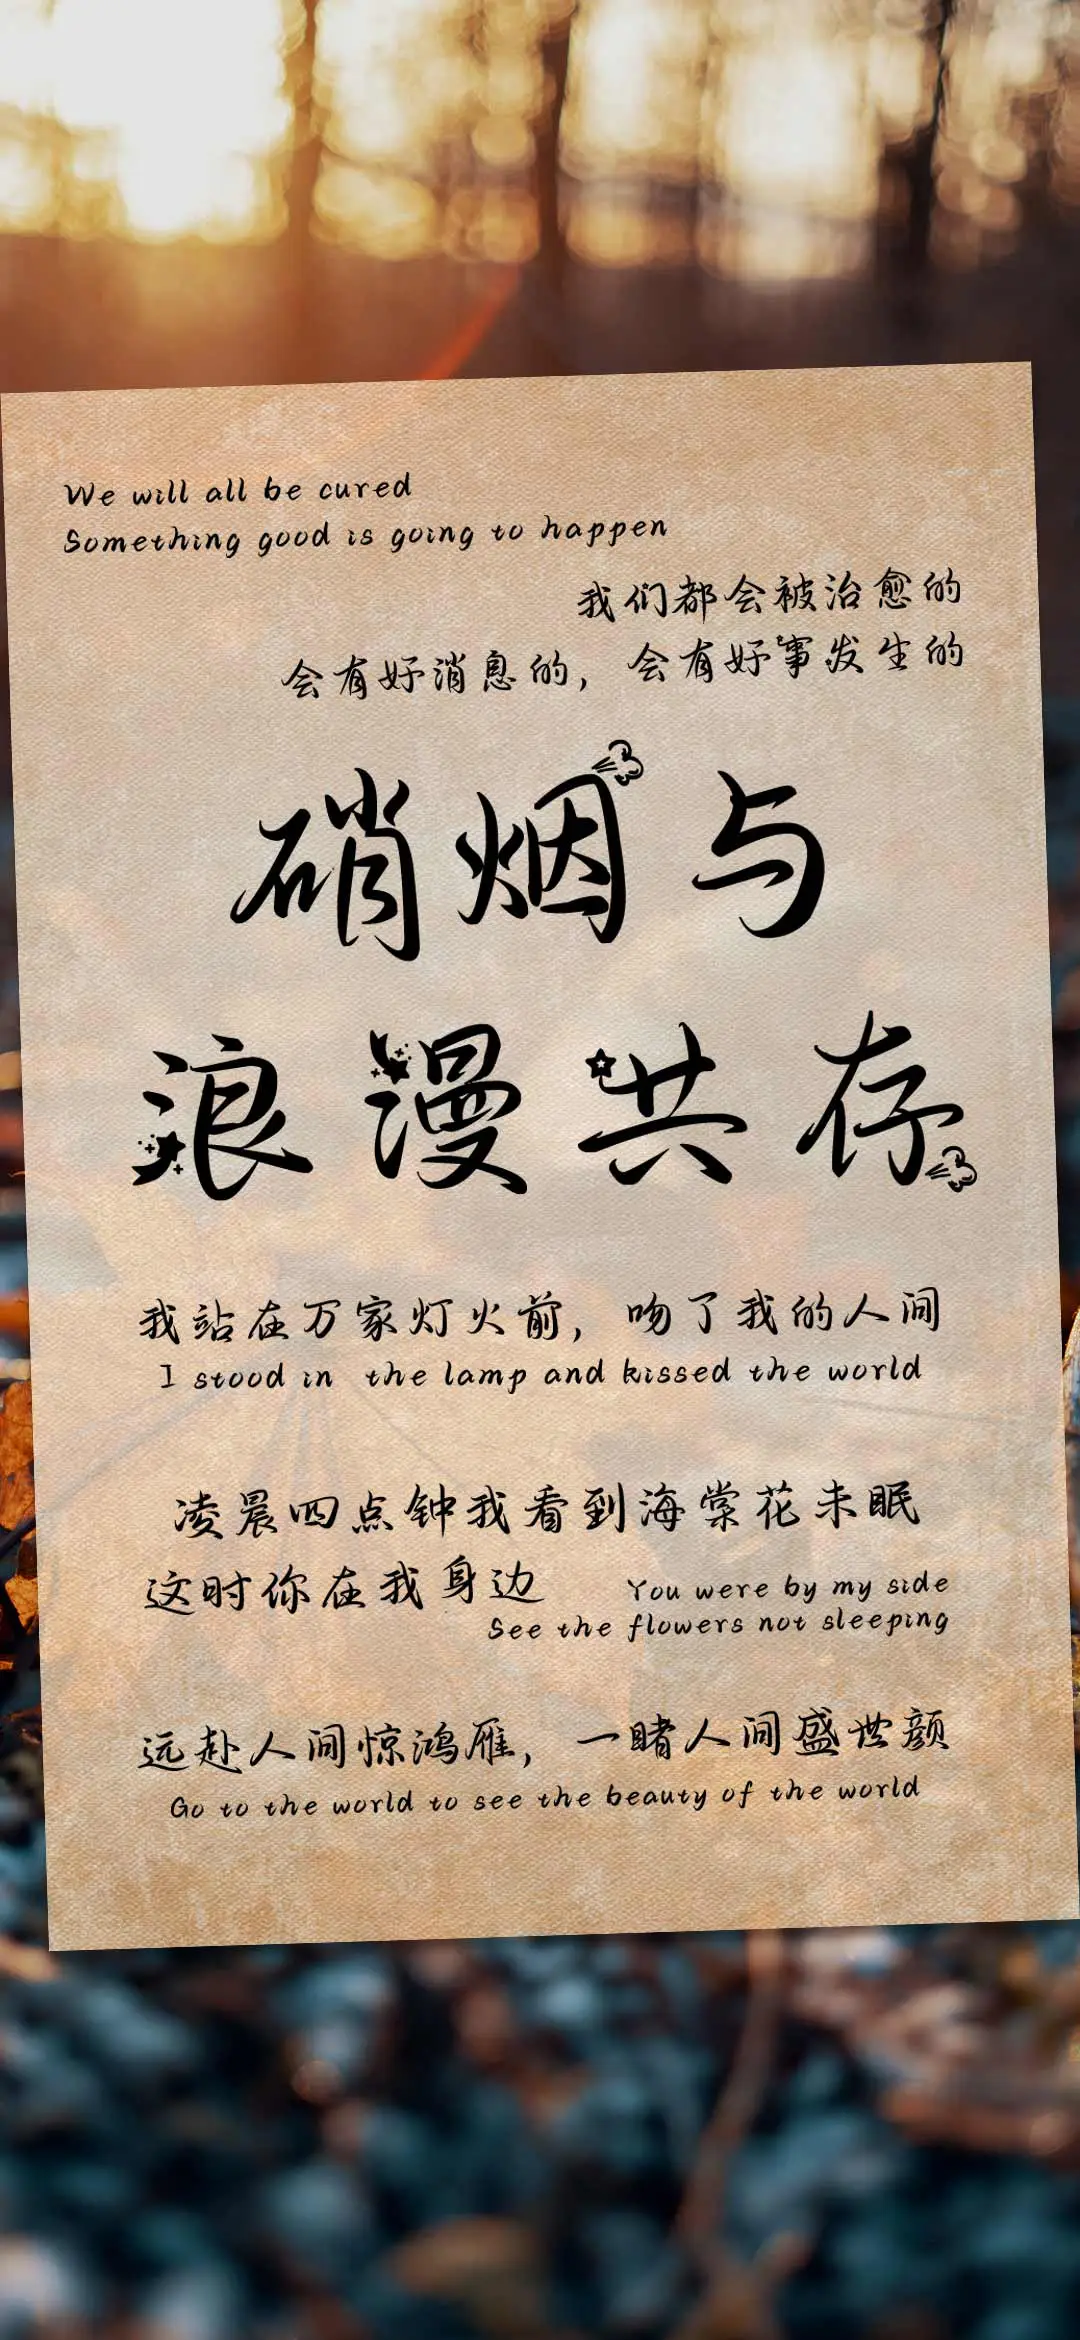 We will all be cured
Something good is going to happen
我们都会被治愈的
会有好消息的，会有好事发生的
硝烟与
浪漫共存
我站在万家灯火前，吻了我的人间
I stood in the lamp and kissed the world
凌晨四点钟我看到海棠花未眠
这时你在我身边
You were by my side
See the flowers not sleeping
远赴人间惊鸿雁，一睹人间盛世颜
Go to the world to see the beauty of the world